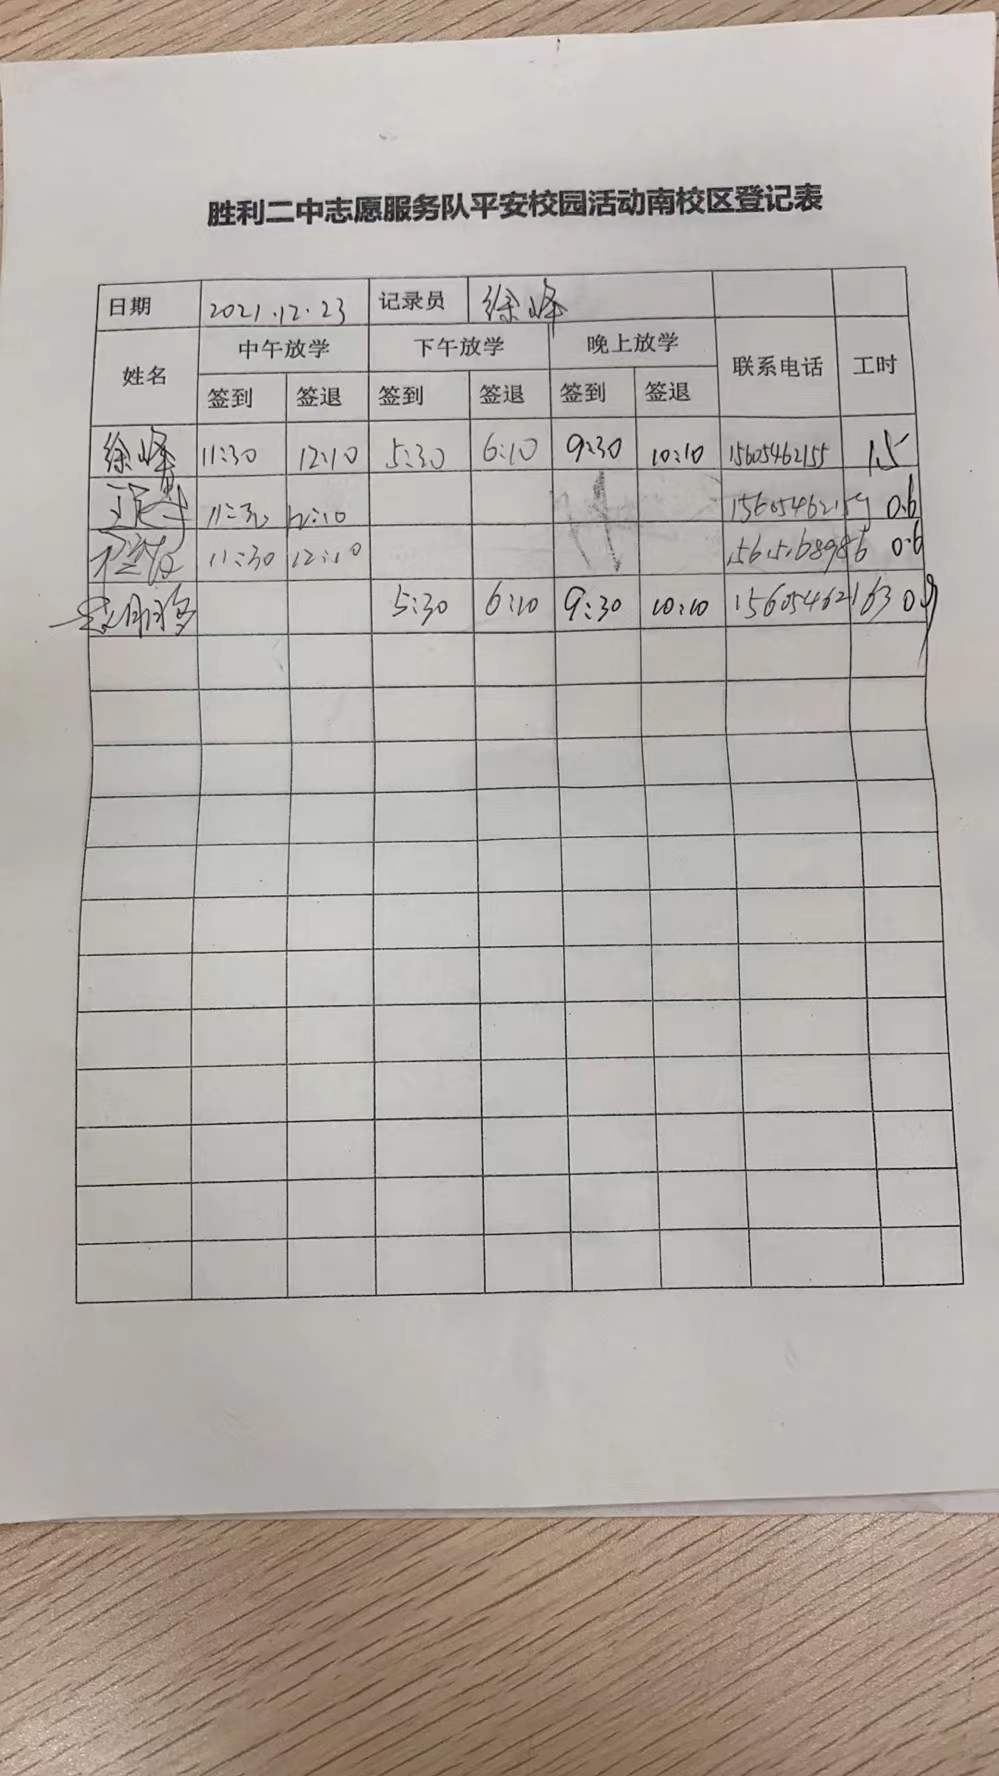 胜利二中志愿服务队平安校园活动南校区登记表
日期 2021.12.23 记录员 徐峰
姓名 中午放学 下午放学 晚上放学 联系电话 工时
签到 签退 签到 签退 签到 签退
徐峰 11:30 12:10 5:30 6:10 9:30 10:10 15605462155 1.5
11:30 12:10 0.6
11:30 12:10 0.6
5:30 6:10 9:30 10:10 15605462163